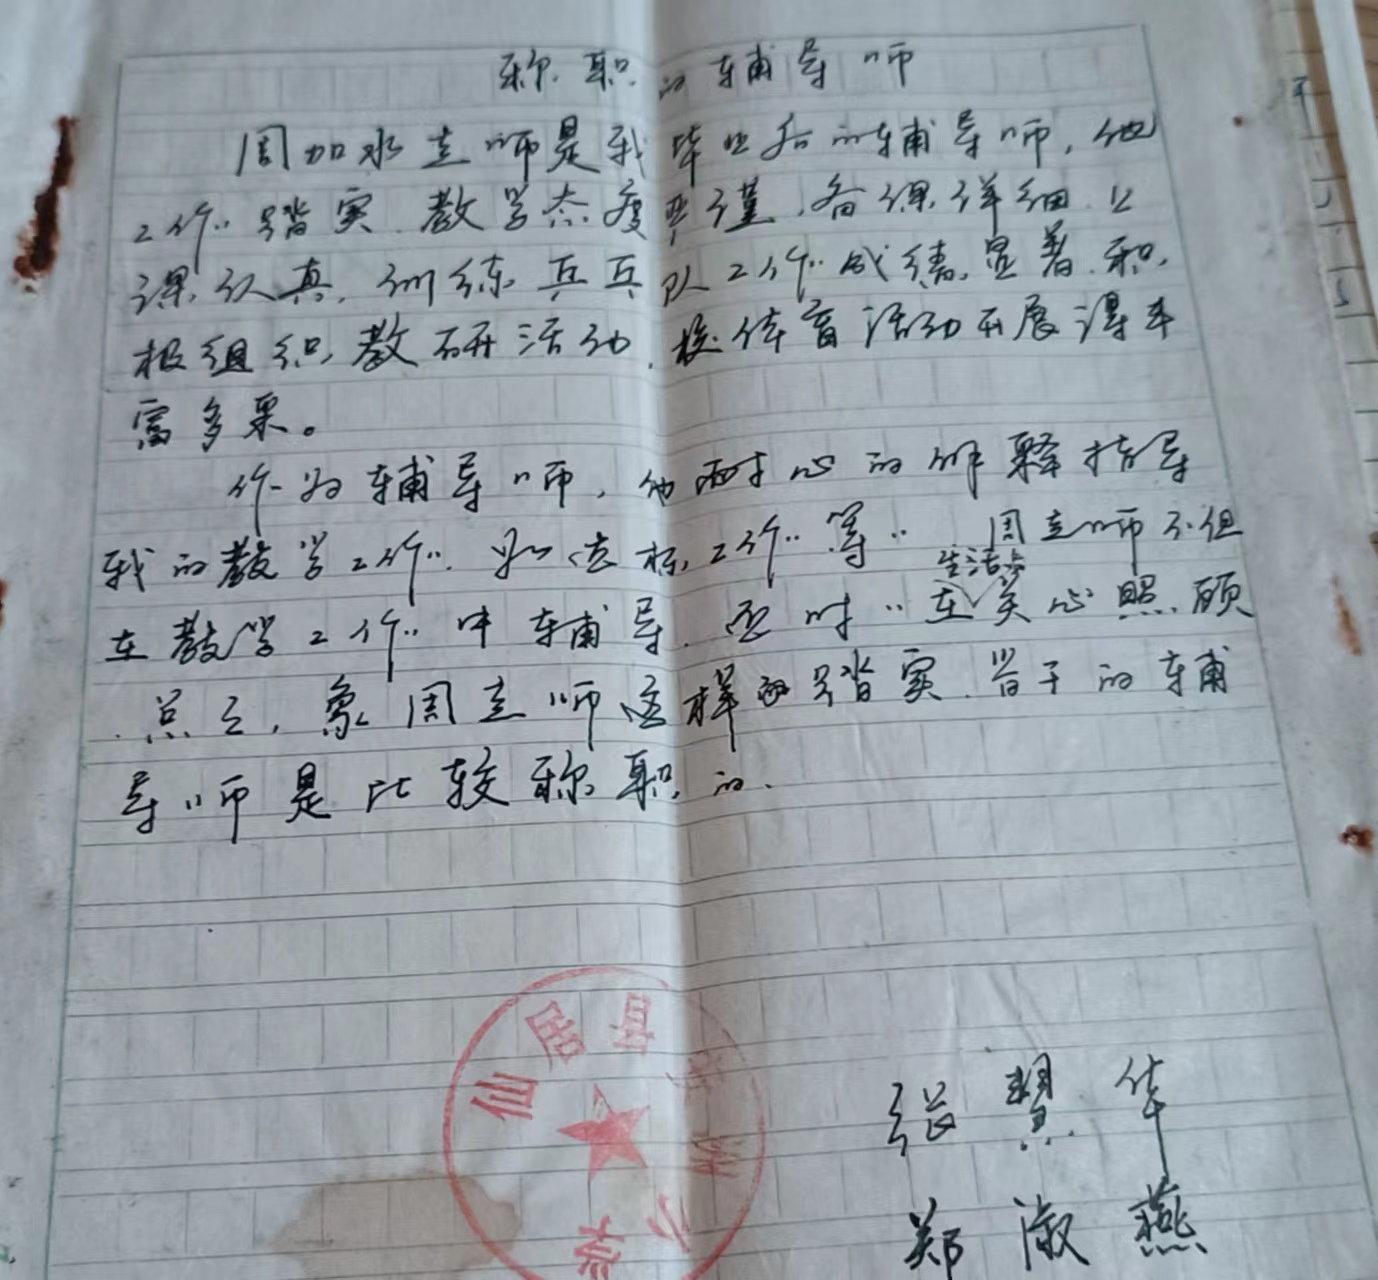 称职的辅导师
周加水老师是我毕业后的辅导师，他
工作踏实，教学态度严谨，备课详细，上
课认真，训练乒乓队工作成绩显著，积
极组织教研活动，校体育活动开展得丰
富多采。
作为辅导师，他耐心的解释指导
我的教学工作，如达标工作等。周老师不但
生活上
在教学工作中辅导，还时时在关心照顾
总之，象周老师这样的踏实、肯干的辅
导师是比较称职的。
仙居县
小
张慧华
郑淑燕